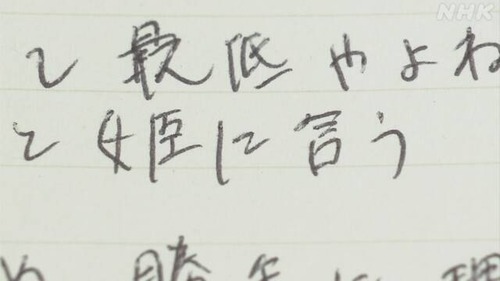 NHK
て最低やよね
と姫に言う